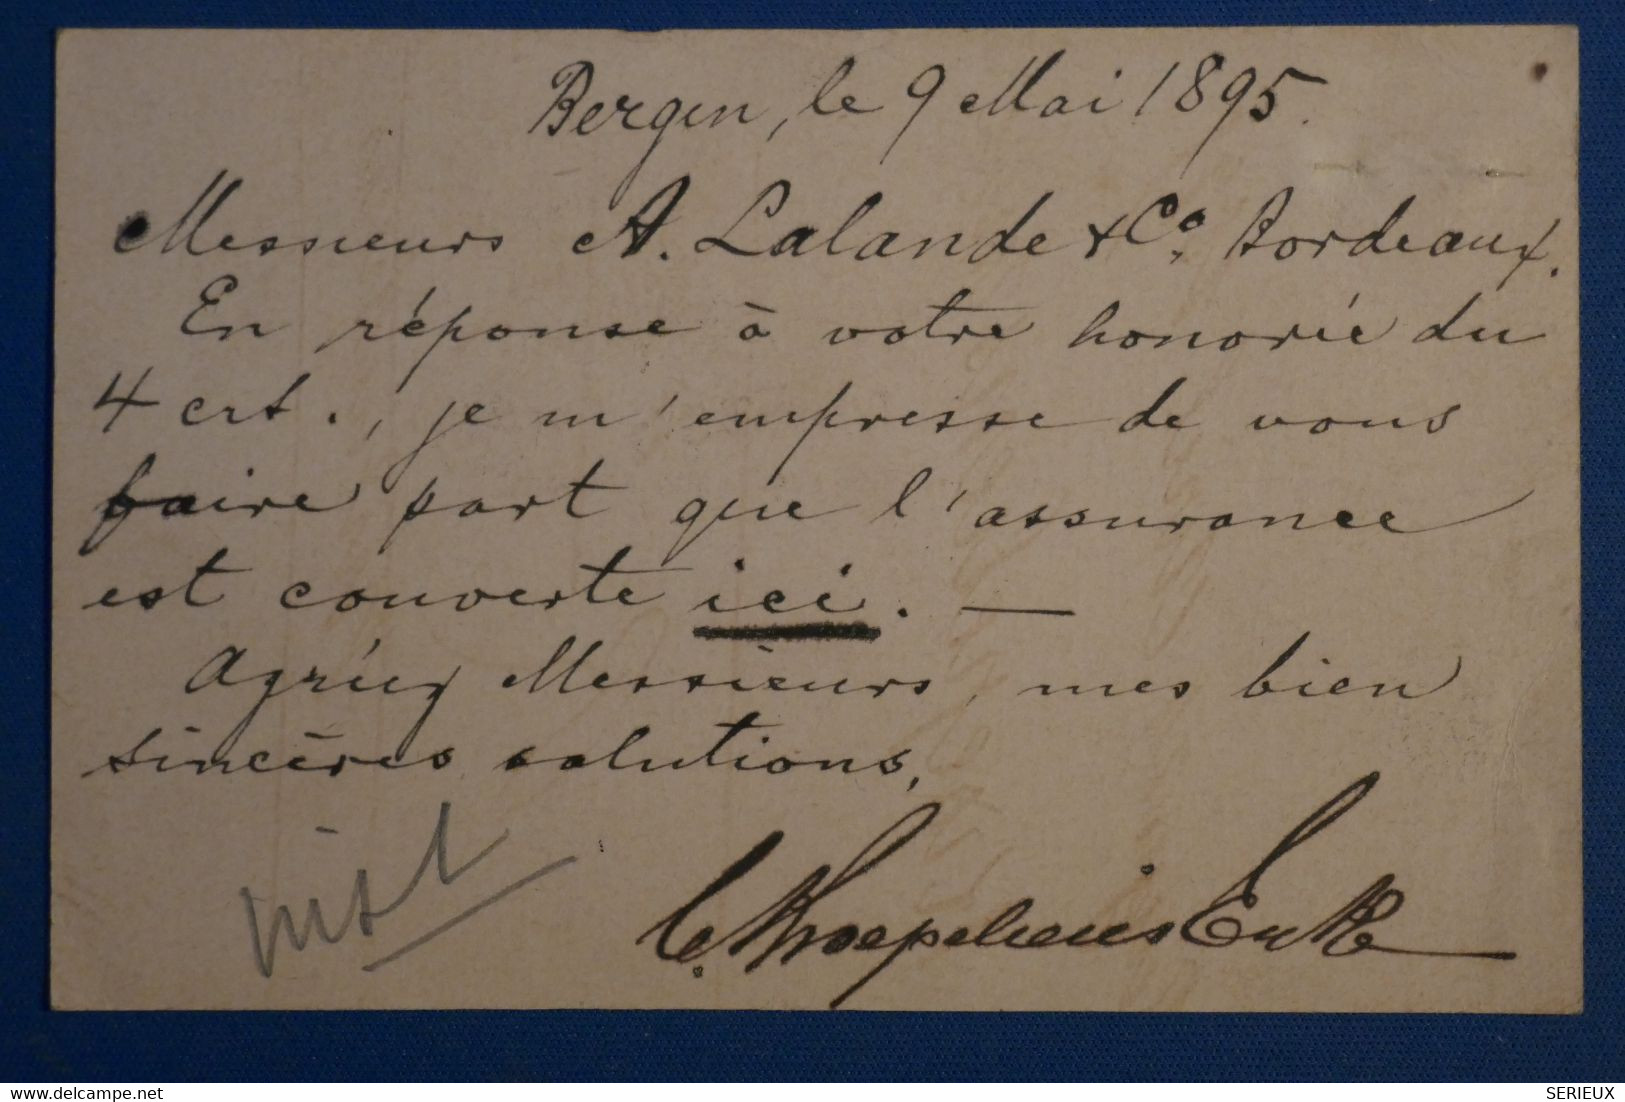 Bergen, le 9 Mai 1895.
Messieurs A. Lalande & Co. Bordeaux.
En réponse à votre honorée du
4 crt., je m'empresse de vous
faire part que l'assurance
est couverte ici. —
Agréez Messieurs, mes bien
sincères salutions,
delcampe.net
SERIEUX